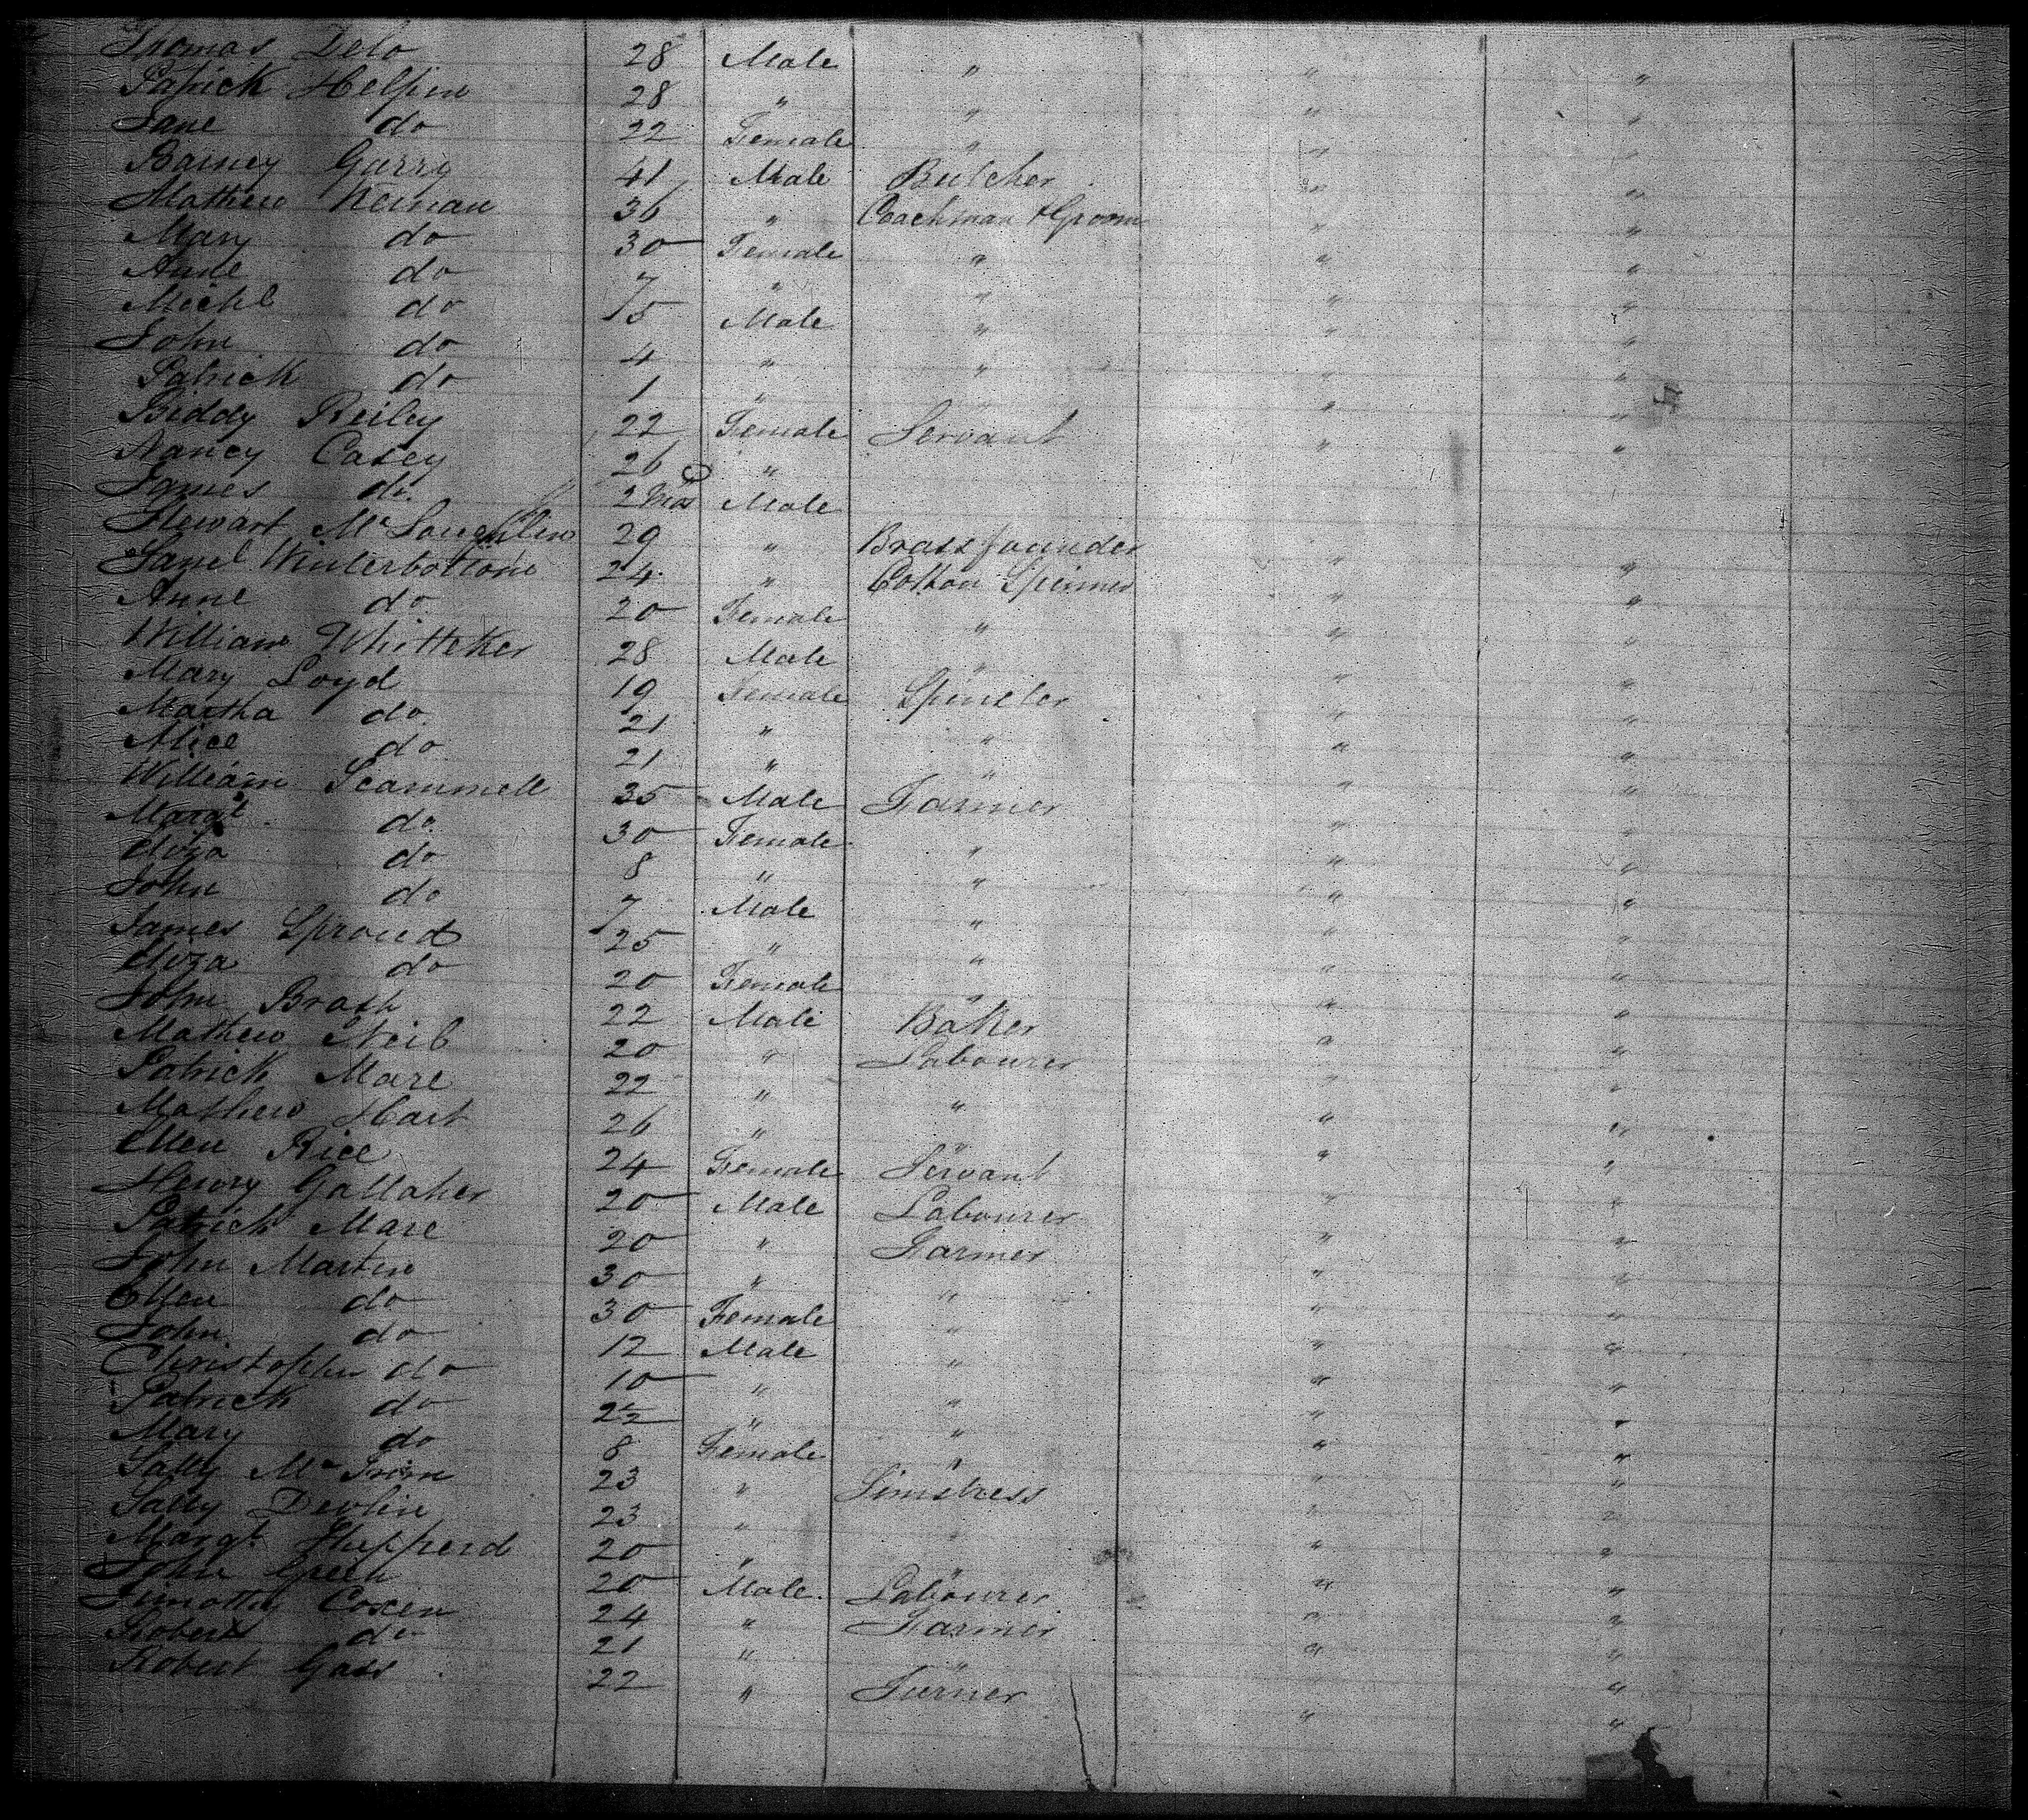 Thomas Delo 28 Male " " "
Patrick Helpin 28 " " " "
Jane do 22 Female " " "
Barney Garry 41 Male Butcher " "
Mathew Kernan 36 " Coachman & Groom " "
Mary do 30 Female " " "
Anne do 7 " " " "
Michl do 5 Male " " "
John do 4 " " " "
Patrick do 1 " " " "
Biddy Reiley 22 Female Servant " "
Nancy Casey 26 "
James do. 2 Mos Male
Stewart Mc Laughlin 29 " Brass founder " "
Saml Winterbottom 24 " Cotton Spinner " "
Anne do 20 Female " " "
William Whitteker 28 Male " " "
Mary Loyd 19 Female Spinster " "
Martha do 21 " " " "
Alice do 21 " " " "
William Scammell 35 Male Farmer " "
Margt do. 30 Female " " "
Eliza do 8 " " " "
John do 7 Male " " "
James Sproud 25 " " " "
Eliza do 20 Female " " "
John Brash 22 Male Baker " "
Mathew Neil 20 " Labourer " "
Patrick Mare 22 " " " "
Mathew Hart 26 " " " "
Ellen Rice 24 Female Servant " "
Henry Gallaher 20 Male Labourer " "
Patrick Mare 20 " Farmer " "
John Martin 30 " " " "
Ellen do 30 Female " " "
John do 12 Male " " "
Christopher do 10 " " " "
Patrick do 2½ " " " "
Mary do 8 Female " " "
Sally Mc 23 " Simstress " "
Sally Devlin 23 " " " "
Margt Shepperd 20 " " " "
John Green 20 Male Labourer " "
Timothy Coxen 24 " Farmer " "
Robert do 21 " " " "
Robert Gass 22 " Turner " "